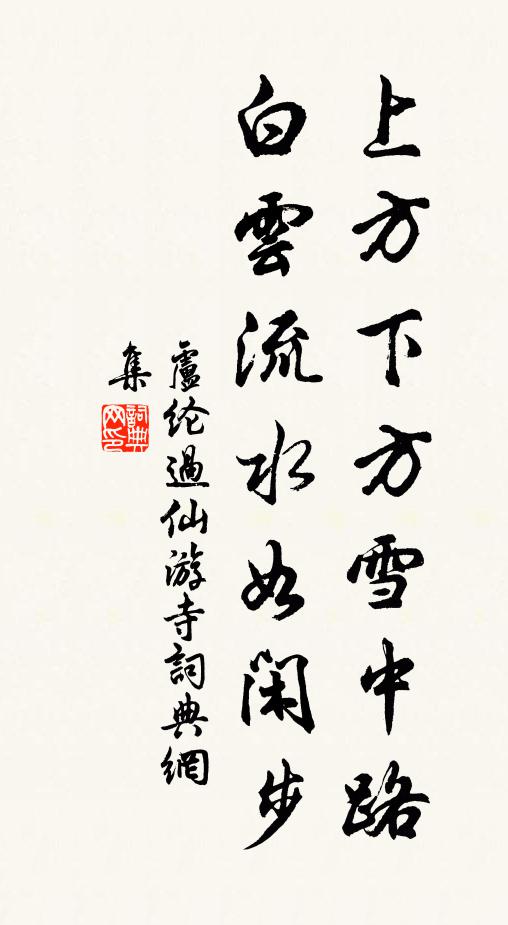 上方下方雪中路
白雲流水如閑步
盧纶過仙游寺詞典網
集
詞典网印